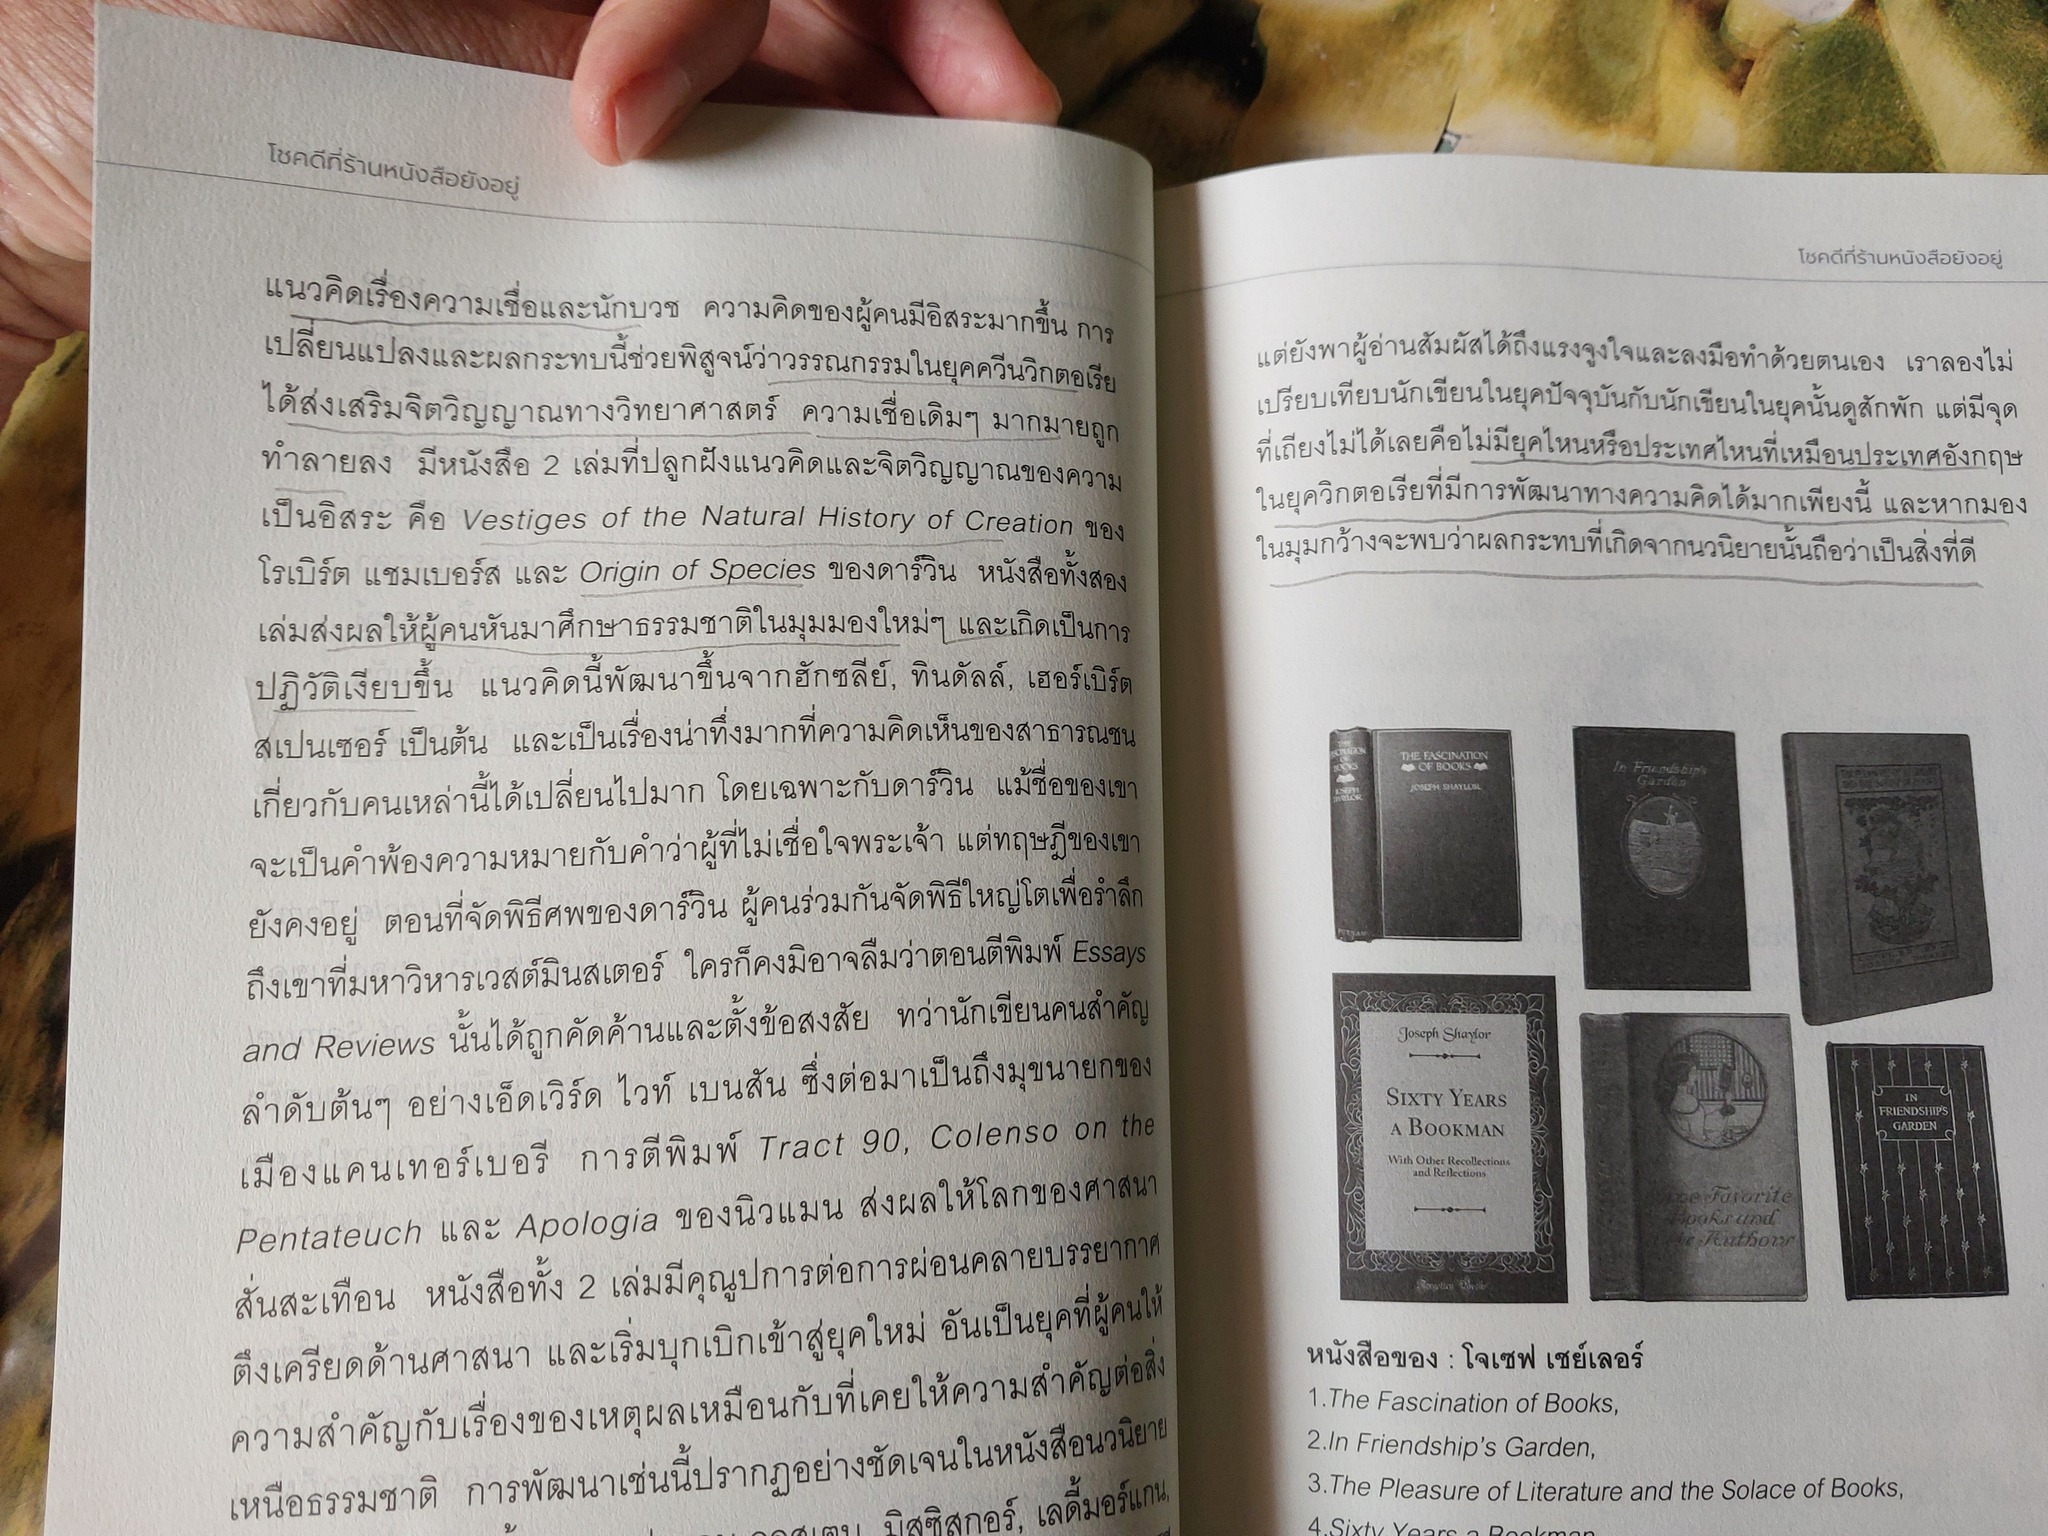 โชคดีที่ร้านหนังสือยังอยู่
แนวคิดเรื่องความเชื่อและนักบวช ความคิดของผู้คนมีอิสระมากขึ้น การ
เปลี่ยนแปลงและผลกระทบนี้ช่วยพิสูจน์ว่าวรรณกรรมในยุคควีนวิกตอเรีย
ได้ส่งเสริมจิตวิญญาณทางวิทยาศาสตร์ ความเชื่อเดิมๆ มากมายถูก
ทำลายลง มีหนังสือ 2 เล่มที่ปลูกฝังแนวคิดและจิตวิญญาณของความ
เป็นอิสระ คือ Vestiges of the Natural History of Creation ของ
โรเบิร์ต แชมเบอร์ส และ Origin of Species ของดาร์วิน หนังสือทั้งสอง
เล่มส่งผลให้ผู้คนหันมาศึกษาธรรมชาติในมุมมองใหม่ๆ และเกิดเป็นการ
ปฏิวัติเงียบขึ้น แนวคิดนี้พัฒนาขึ้นจากฮักซลีย์, ทินดัลล์, เฮอร์เบิร์ต
สเปนเซอร์ เป็นต้น และเป็นเรื่องน่าทึ่งมากที่ความคิดเห็นของสาธารณชน
เกี่ยวกับคนเหล่านี้ได้เปลี่ยนไปมาก โดยเฉพาะกับดาร์วิน แม้ชื่อของเขา
จะเป็นคำพ้องความหมายกับคำว่าผู้ที่ไม่เชื่อใจพระเจ้า แต่ทฤษฎีของเขา
ยังคงอยู่ ตอนที่จัดพิธีศพของดาร์วิน ผู้คนร่วมกันจัดพิธีใหญ่โตเพื่อรำลึก
ถึงเขาที่มหาวิหารเวสต์มินสเตอร์ ใครก็คงมิอาจลืมว่าตอนตีพิมพ์ Essays
and Reviews นั้นได้ถูกคัดค้านและตั้งข้อสงสัย ทว่านักเขียนคนสำคัญ
ลำดับต้นๆ อย่างเอ็ดเวิร์ด ไวท์ เบนสัน ซึ่งต่อมาเป็นถึงมุขนายกของ
เมืองแคนเทอร์เบอรี การตีพิมพ์ Tract 90, Colenso on the
Pentateuch และ Apologia ของนิวแมน ส่งผลให้โลกของศาสนา
สั่นสะเทือน หนังสือทั้ง 2 เล่มมีคุณูปการต่อการผ่อนคลายบรรยากาศ
ตึงเครียดด้านศาสนา และเริ่มบุกเบิกเข้าสู่ยุคใหม่ อันเป็นยุคที่ผู้คนให้
ความสำคัญกับเรื่องของเหตุผลเหมือนกับที่เคยให้ความสำคัญต่อสิ่ง
เหนือธรรมชาติ การพัฒนาเช่นนี้ปรากฏอย่างชัดเจนในหนังสือนวนิยาย
มิสซิสกอร์, เลดี้มอร์แกน,
โชคดีที่ร้านหนังสือยังอยู่
แต่ยังพาผู้อ่านสัมผัสได้ถึงแรงจูงใจและลงมือทำด้วยตนเอง เราลองไม่
เปรียบเทียบนักเขียนในยุคปัจจุบันกับนักเขียนในยุคนั้นดูสักพัก แต่มีจุด
ที่เถียงไม่ได้เลยคือไม่มียุคไหนหรือประเทศไหนที่เหมือนประเทศอังกฤษ
ในยุควิกตอเรียที่มีการพัฒนาทางความคิดได้มากเพียงนี้ และหากมอง
ในมุมกว้างจะพบว่าผลกระทบที่เกิดจากนวนิยายนั้นถือว่าเป็นสิ่งที่ดี
THE FASCINATION
OF BOOKS
JOSEPH SHAYLOR
THE FASCINATION
OF
BOOKS
JOSEPH
SHAYLOR
In Friendship's
Garden
Joseph Shaylor
SIXTY YEARS
A BOOKMAN
With Other Recollections
and Reflections
Forgotten Books
Favorite
Books and
Authors
IN
FRIENDSHIP'S
GARDEN
หนังสือของ : โจเซฟ เชย์เลอร์
1.The Fascination of Books,
2.In Friendship's Garden,
3.The Pleasure of Literature and the Solace of Books,
4.Sixty Years a Bookman